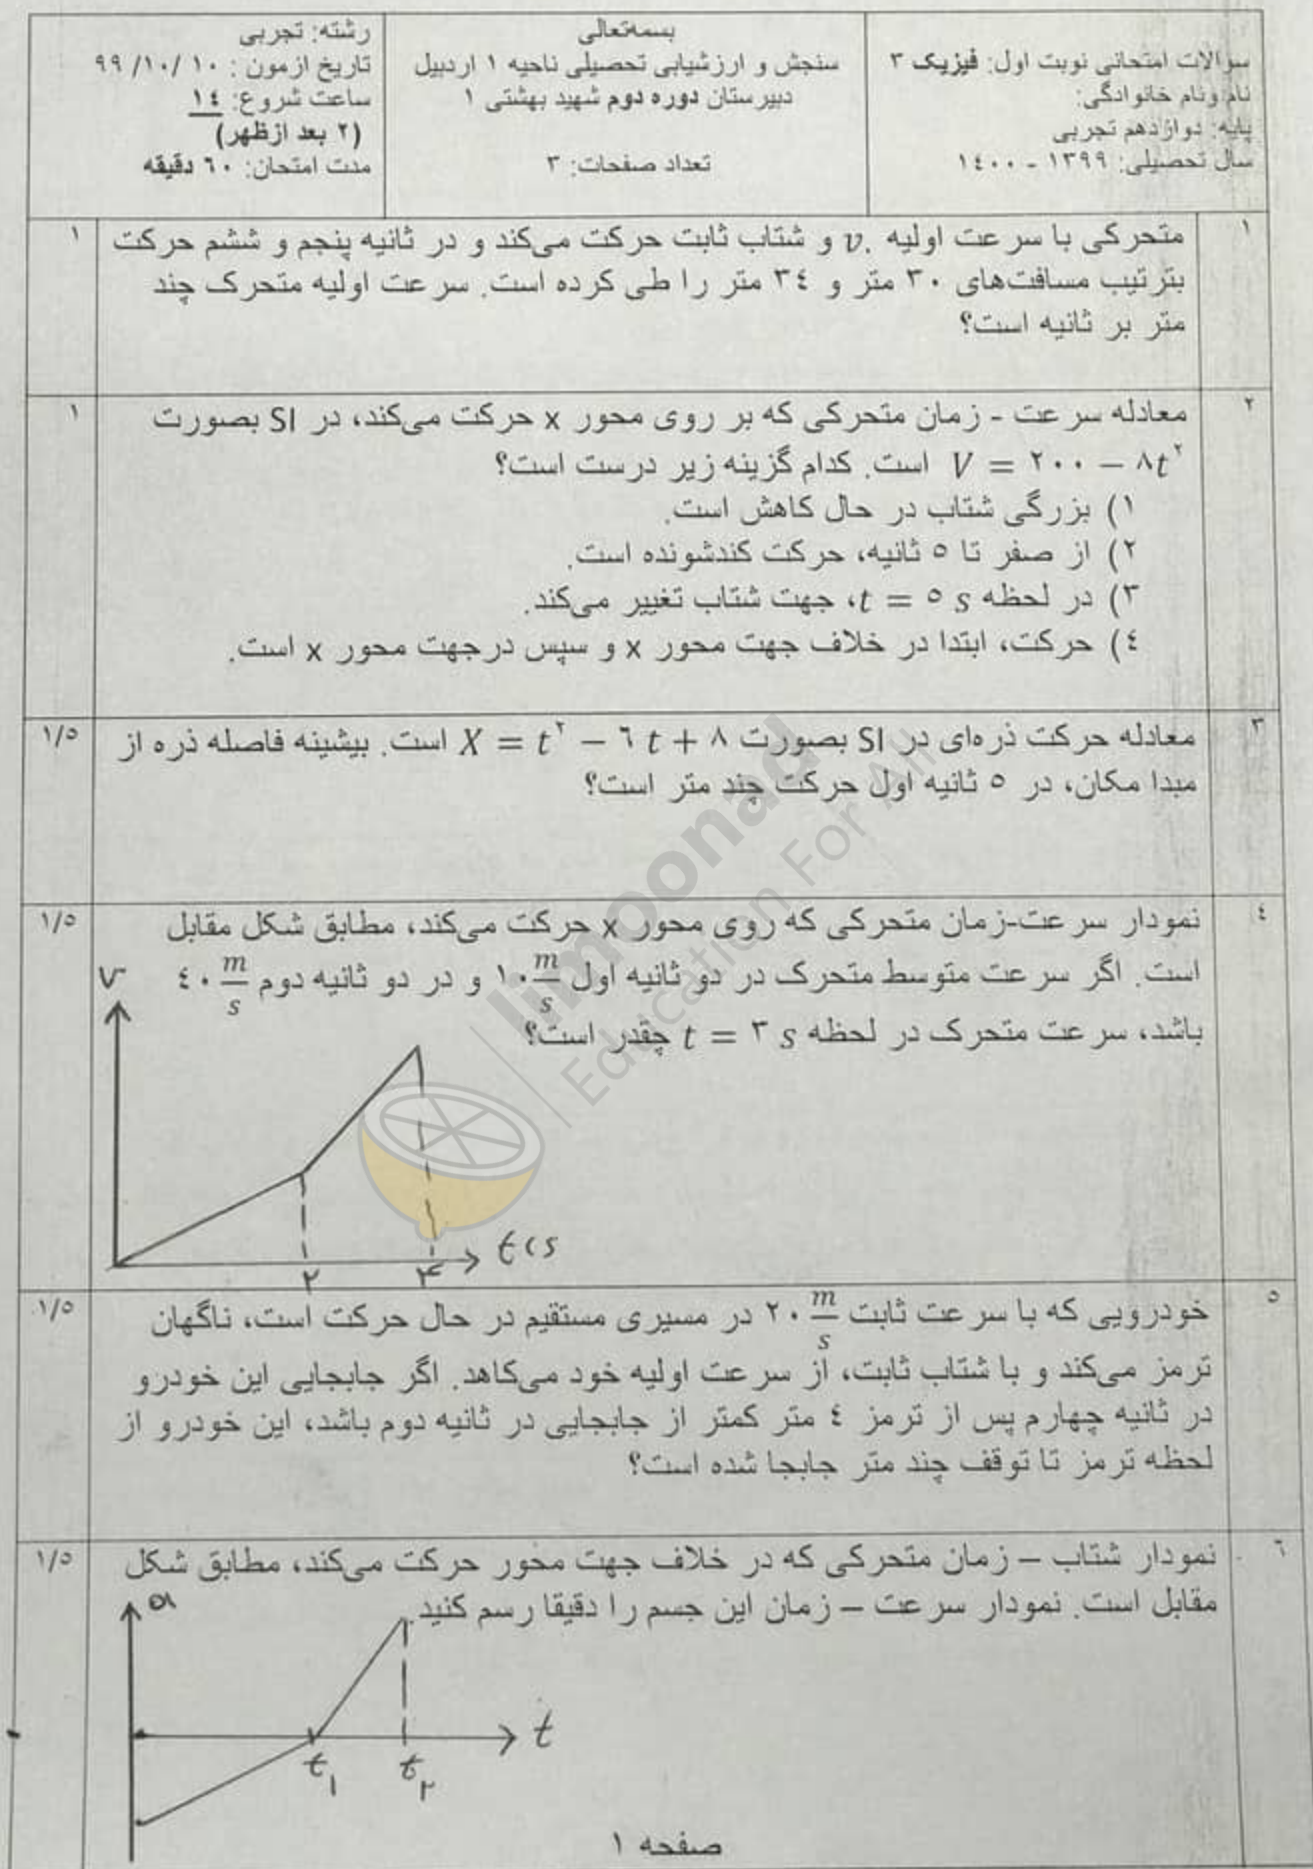 سوالات امتحانی نوبت اول: فیزیک ۳
نام ونام خانوادگی:
پایه: دوازدهم تجربی
سال تحصیلی: ۱۳۹۹ - ۱۴۰۰
بسمه‌تعالی
سنجش و ارزشیابی تحصیلی ناحیه ۱ اردبیل
دبیرستان دوره دوم شهید بهشتی ۱
تعداد صفحات: ۳
رشته: تجربی
تاریخ ازمون: ۱۰/ ۱۰/ ۹۹
ساعت شروع: ۱٤
(۲ بعد ازظهر)
مدت امتحان: ٦۰ دقیقه
۱ متحرکی با سرعت اولیه v. و شتاب ثابت حرکت می‌کند و در ثانیه پنجم و ششم حرکت ۱
بترتیب مسافت‌های ۳۰ متر و ۳٤ متر را طی کرده است. سرعت اولیه متحرک چند
متر بر ثانیه است؟
۲ معادله سرعت - زمان متحرکی که بر روی محور x حرکت می‌کند، در SI بصورت ۱
V = ۲۰۰ − ۸t^۲ است. کدام گزینه زیر درست است؟
۱) بزرگی شتاب در حال کاهش است.
۲) از صفر تا ٥ ثانیه، حرکت کندشونده است.
۳) در لحظه t = ٥ s، جهت شتاب تغییر می‌کند.
٤) حرکت، ابتدا در خلاف جهت محور x و سپس درجهت محور x است.
۳ معادله حرکت ذره‌ای در SI بصورت X = t^۲ − ٦ t + ۸ است. بیشینه فاصله ذره از ۱/٥
مبدا مکان، در ٥ ثانیه اول حرکت چند متر است؟
٤ نمودار سرعت-زمان متحرکی که روی محور x حرکت می‌کند، مطابق شکل مقابل ۱/٥
است. اگر سرعت متوسط متحرک در دو ثانیه اول ۱۰ m/s و در دو ثانیه دوم ٤۰ m/s
باشد، سرعت متحرک در لحظه t = ۳ s چقدر است؟
v
t(s
۲ ۴
٥ خودرویی که با سرعت ثابت ۲۰ m/s در مسیری مستقیم در حال حرکت است، ناگهان ۱/٥
ترمز می‌کند و با شتاب ثابت، از سرعت اولیه خود می‌کاهد. اگر جابجایی این خودرو
در ثانیه چهارم پس از ترمز ٤ متر کمتر از جابجایی در ثانیه دوم باشد، این خودرو از
لحظه ترمز تا توقف چند متر جابجا شده است؟
٦ نمودار شتاب – زمان متحرکی که در خلاف جهت محور حرکت می‌کند، مطابق شکل ۱/٥
مقابل است. نمودار سرعت – زمان این جسم را دقیقا رسم کنید.
a
t
t۱ t۲
صفحه ۱
limoonad
Education For All